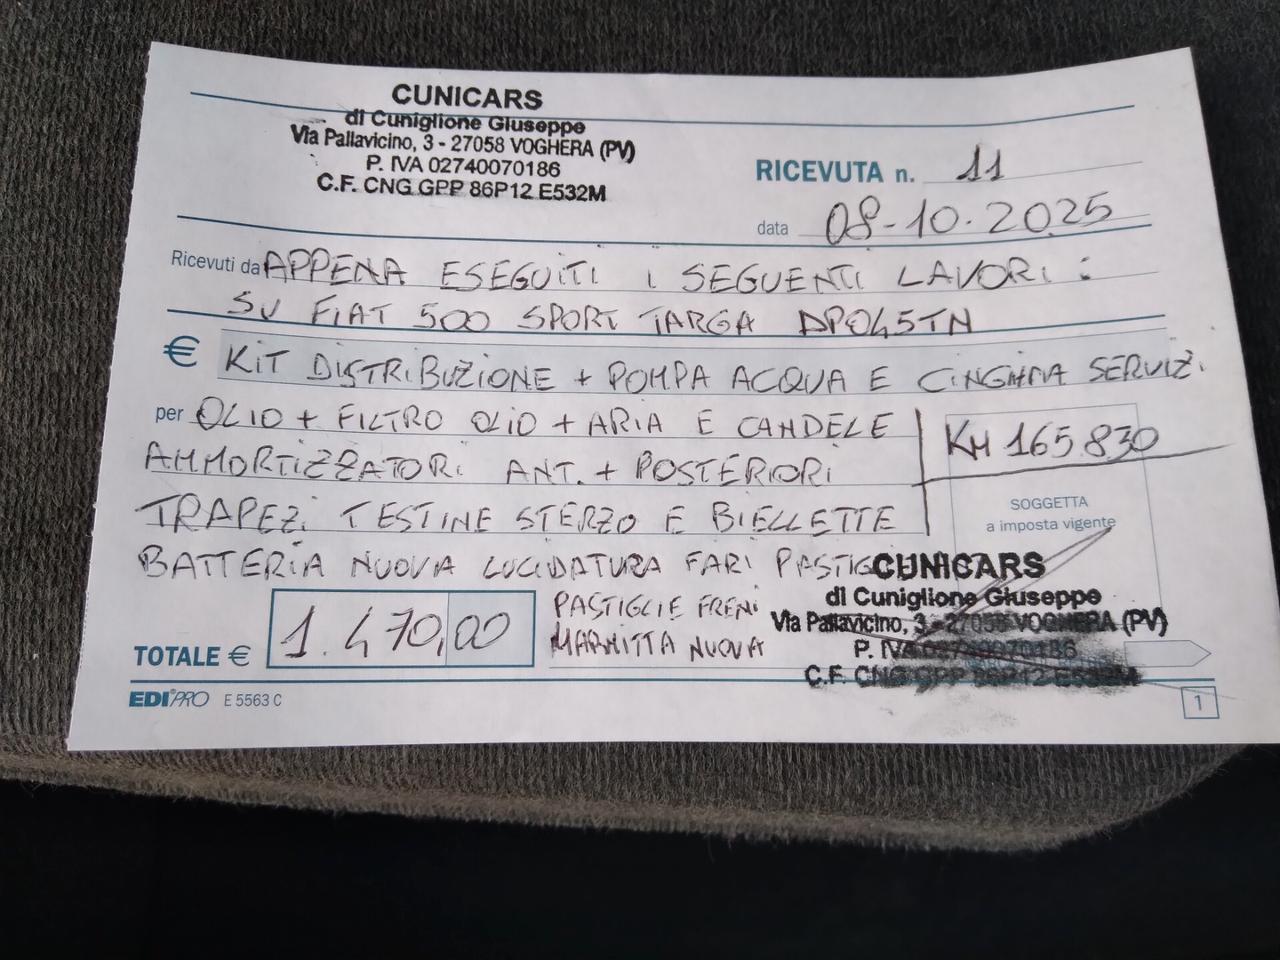 CUNICARS
di Cuniglione Giuseppe
Via Pallavicino, 3 - 27058 VOGHERA (PV)
P. IVA 02740070186
C.F. CNG GPP 86P12 E532M
RICEVUTA n. 11
data 08-10-2025
Ricevuti da APPENA ESEGUITI I SEGUENTI LAVORI:
SU FIAT 500 SPORT TARGA DP045TN
€ KIT DISTRIBUZIONE + POMPA ACQUA E CINGHIA SERVIZI
per OLIO + FILTRO OLIO + ARIA E CANDELE
KM 165.830
AMMORTIZZATORI ANT. + POSTERIORI
TRAPEZI TESTINE STERZO E BIELLETTE
SOGGETTA
a imposta vigente
BATTERIA NUOVA LUCIDATURA FARI PASTIG
PASTIGLIE FRENI
MARMITTA NUOVA
TOTALE € 1.470,00
CUNICARS
di Cuniglione Giuseppe
Via Pallavicino, 3 - 27058 VOGHERA (PV)
P. IVA 02740070186
C.F. CNG GPP 86P12 E532M
EDIPRO E 5563 C
1